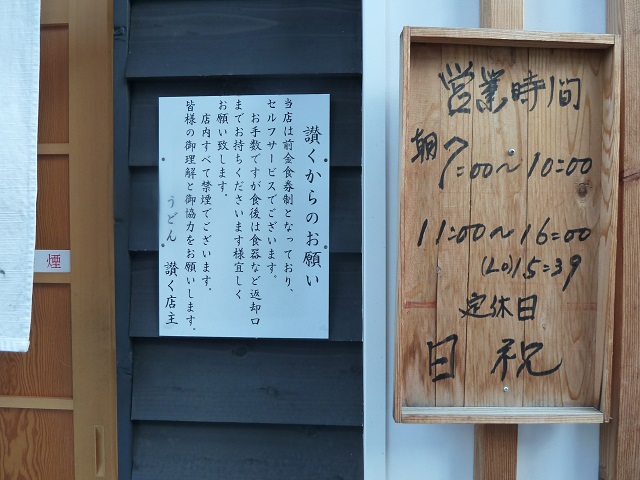 讃くからのお願い
当店は前金食券制となっており、
セルフサービスでございます。
お手数ですが食後は食器など返却口
までお持ちくださいます様宜しく
お願い致します。
店内すべて禁煙でございます。
皆様の御理解と御協力をお願いします。
うどん 讃く店主
営業時間
朝7:00〜10:00
11:00〜16:00
(L.O)15:39
定休日
日祝
煙